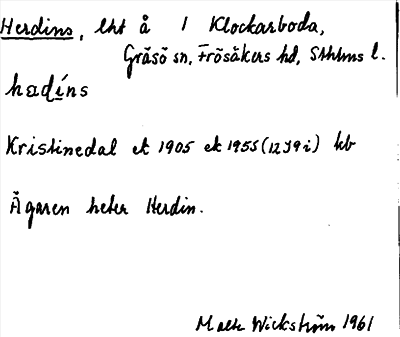 Herdins, lht å 1 Klockarboda,
Gräsö sn, Frösåkers hd, Sthlms l.
hadíns
Kristinedal ek 1905 ek 1955 (12J9i) hb
Ägaren heter Herdin.
Mats Wickström 1961